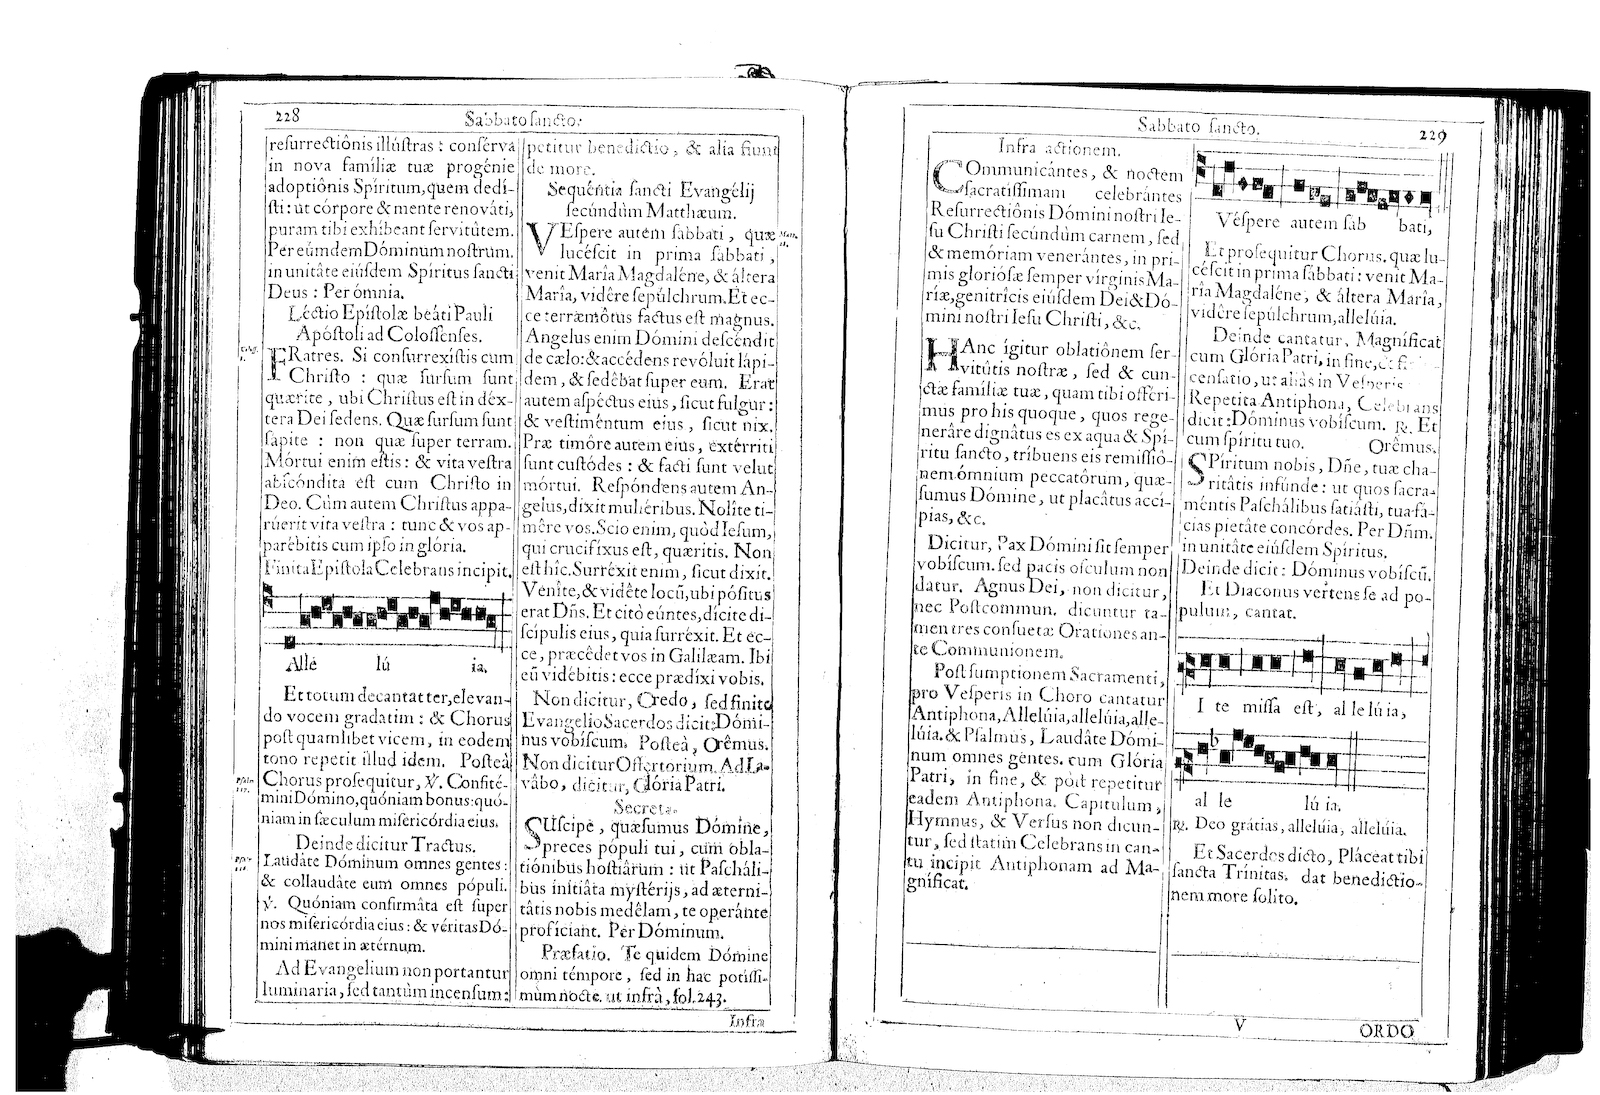 228
Sabbato ſancto.
reſurrectiônis illúſtras : conſérva
in nova famíliæ tuæ progénie
adoptiônis Spíritum, quem dedi-
ſti : ut córpore & mente renováti,
puram tibi exhíbeant ſervitûtem.
Per eúmdem Dóminum noſtrum.
in unitâte eiúſdem Spíritus ſancti
Deus : Per ómnia.
Léctio Epíſtolæ beáti Pauli
Apóſtoli ad Coloſſenſes.
FRatres. Si conſurrexíſtis cum
Chriſto : quæ ſurſum ſunt
quærite , ubi Chriſtus eſt in déx-
tera Dei ſedens. Quæ ſurſum ſunt
ſápite : non quæ ſuper terram.
Mórtui enim eſtis : & vita veſtra
abſcóndita eſt cum Chriſto in
Deo. Cùm autem Chriſtus appa-
rúerit vita veſtra : tunc & vos ap-
parébitis cum ipſo in glória.
Finita Epiſtola Celebrans incipit.
Allé lú ia.
Et totum decantat ter, elevan-
do vocem gradatim : & Chorus
poſt quamlibet vicem, in eodem
tono repetit illud idem. Poſteà
Chorus proſequitur, ℣. Confité-
mini Dómino, quóniam bonus: quó-
niam in ſæculum miſericórdia eius.
Deinde dicitur Tractus.
Laudâte Dóminum omnes gentes :
& collaudâte eum omnes pópuli.
℣. Quóniam confirmâta eſt ſuper
nos miſericórdia eius : & véritas Dó-
mini manet in ætérnum.
Ad Evangelium non portantur
luminaria, ſed tantùm incenſum :
petitur benedictio , & alia fiunt
de more.
Sequéntia ſancti Evangélij
ſecúndùm Matthæum.
VEſpere autem ſabbati , quæ
lucéſcit in prima ſábbati ,
venit María Magdaléne, & áltera
María, vidêre ſepúlchrum. Et ec-
ce terræmôtus factus eſt magnus.
Angelus enim Dómini deſcéndit
de cælo: & accédens revóluit lápi-
dem , & ſedébat ſuper eum. Erat
autem aſpéctus eius , ſicut fulgur :
& veſtiméntum eius , ſicut nix.
Præ timôre autem eius, extérriti
ſunt cuſtódes : & facti ſunt velut
mórtui. Reſpóndens autem An-
gelus, dixit muliéribus. Nolîte ti-
mêre vos. Scio enim, quòd Ieſum,
qui crucifíxus eſt, quæritis. Non
eſt hîc. Surréxit enim , ſicut dixit.
Venîte, & vidête locũ, ubi póſitus
erat Dñs. Et citò eúntes, dícite di-
ſcípulis eius, quia ſurréxit. Et ec-
ce , præcêdet vos in Galilæam. Ibi
eũ vidébitis : ecce prædixi vobis.
Non dicitur, Credo , ſed finito
Evangelio Sacerdos dicit: Dómi-
nus vobíſcum. Poſteà , Orêmus.
Non dicitur Offertorium. Ad La-
vâbo, dicitur, Glória Patri.
Secreta.
SUſcipe , quæſumus Dómine,
preces pópuli tui , cum obla-
tiónibus hoſtiârum : ut Paſcháli-
bus initiâta myſtérijs, ad æterni-
tâtis nobis medêlam, te operánte
profíciant. Per Dóminum.
Præfatio. Te quidem Dómine
omni témpore , ſed in hac potíſſi-
mùm nocte. ut infrà, fol. 243.
Infra
Sabbato ſancto.
229
Infra actionem.
COmmunicántes, & noctem
ſacratíſſimam celebrántes
Reſurrectiônis Dómini noſtri Ie-
ſu Chriſti ſecúndùm carnem, ſed
& memóriam venerántes, in pri-
mis glorióſæ ſemper vírginis Ma-
ríæ, genitrîcis eiúſdem Dei & Dó-
mini noſtri Ieſu Chriſti, &c.
HAnc ígitur oblatiônem ſer-
vitûtis noſtræ , ſed & cun-
ctæ famíliæ tuæ, quam tibi offéri-
mus pro his quoque, quos rege-
nerâre dignâtus es ex aqua & Spí-
ritu ſancto, tríbuens eis remiſſiô-
nem ómnium peccatórum, quæ-
ſumus Dómine, ut placâtus accí-
pias, &c.
Dicitur, Pax Dómini ſit ſemper
vobíſcum. ſed pacis oſculum non
datur. Agnus Dei, non dicitur,
nec Poſtcommun. dicuntur ta-
men tres conſuetæ Orationes an-
te Communionem.
Poſt ſumptionem Sacramenti,
pro Veſperis in Choro cantatur
Antiphona, Allelúia, allelúia, alle-
lúia. & Pſalmus, Laudâte Dómi-
num omnes gentes. cum Glória
Patri, in fine, & pòſt repetitur
eadem Antiphona. Capitulum,
Hymnus, & Verſus non dicun-
tur, ſed ſtatim Celebrans in can-
tu incipit Antiphonam ad Ma-
gníficat.
Véſpere autem ſáb bati,
Et proſequitur Chorus. quæ lu-
céſcit in prima ſábbati : venit Ma-
ría Magdaléne, & áltera María,
vidêre ſepúlchrum, allelúia.
Deinde cantatur, Magníficat
cum Glória Patri, in fine, & fi
cenſatio, ut aliàs in Veſperis
Repetita Antiphona, Celebrans
dicit : Dóminus vobíſcum. ℟. Et
cum ſpíritu tuo. Orêmus.
SPíritum nobis, Dñe, tuæ cha-
ritâtis infúnde : ut quos ſacra-
méntis Paſchálibus ſatiáſti, tua fá-
cias pietâte concórdes. Per Dñm.
in unitâte eiúſdem Spíritus.
Deinde dicit : Dóminus vobíſcũ.
Et Diaconus vertens ſe ad po-
pulum, cantat.
I te miſſa eſt, al le lú ia,
al le lú ia.
℟. Deo grátias, allelúia, allelúia.
Et Sacerdos dicto, Pláceat tibi
ſancta Trínitas. dat benedictio-
nem more ſolito.
V
ORDO